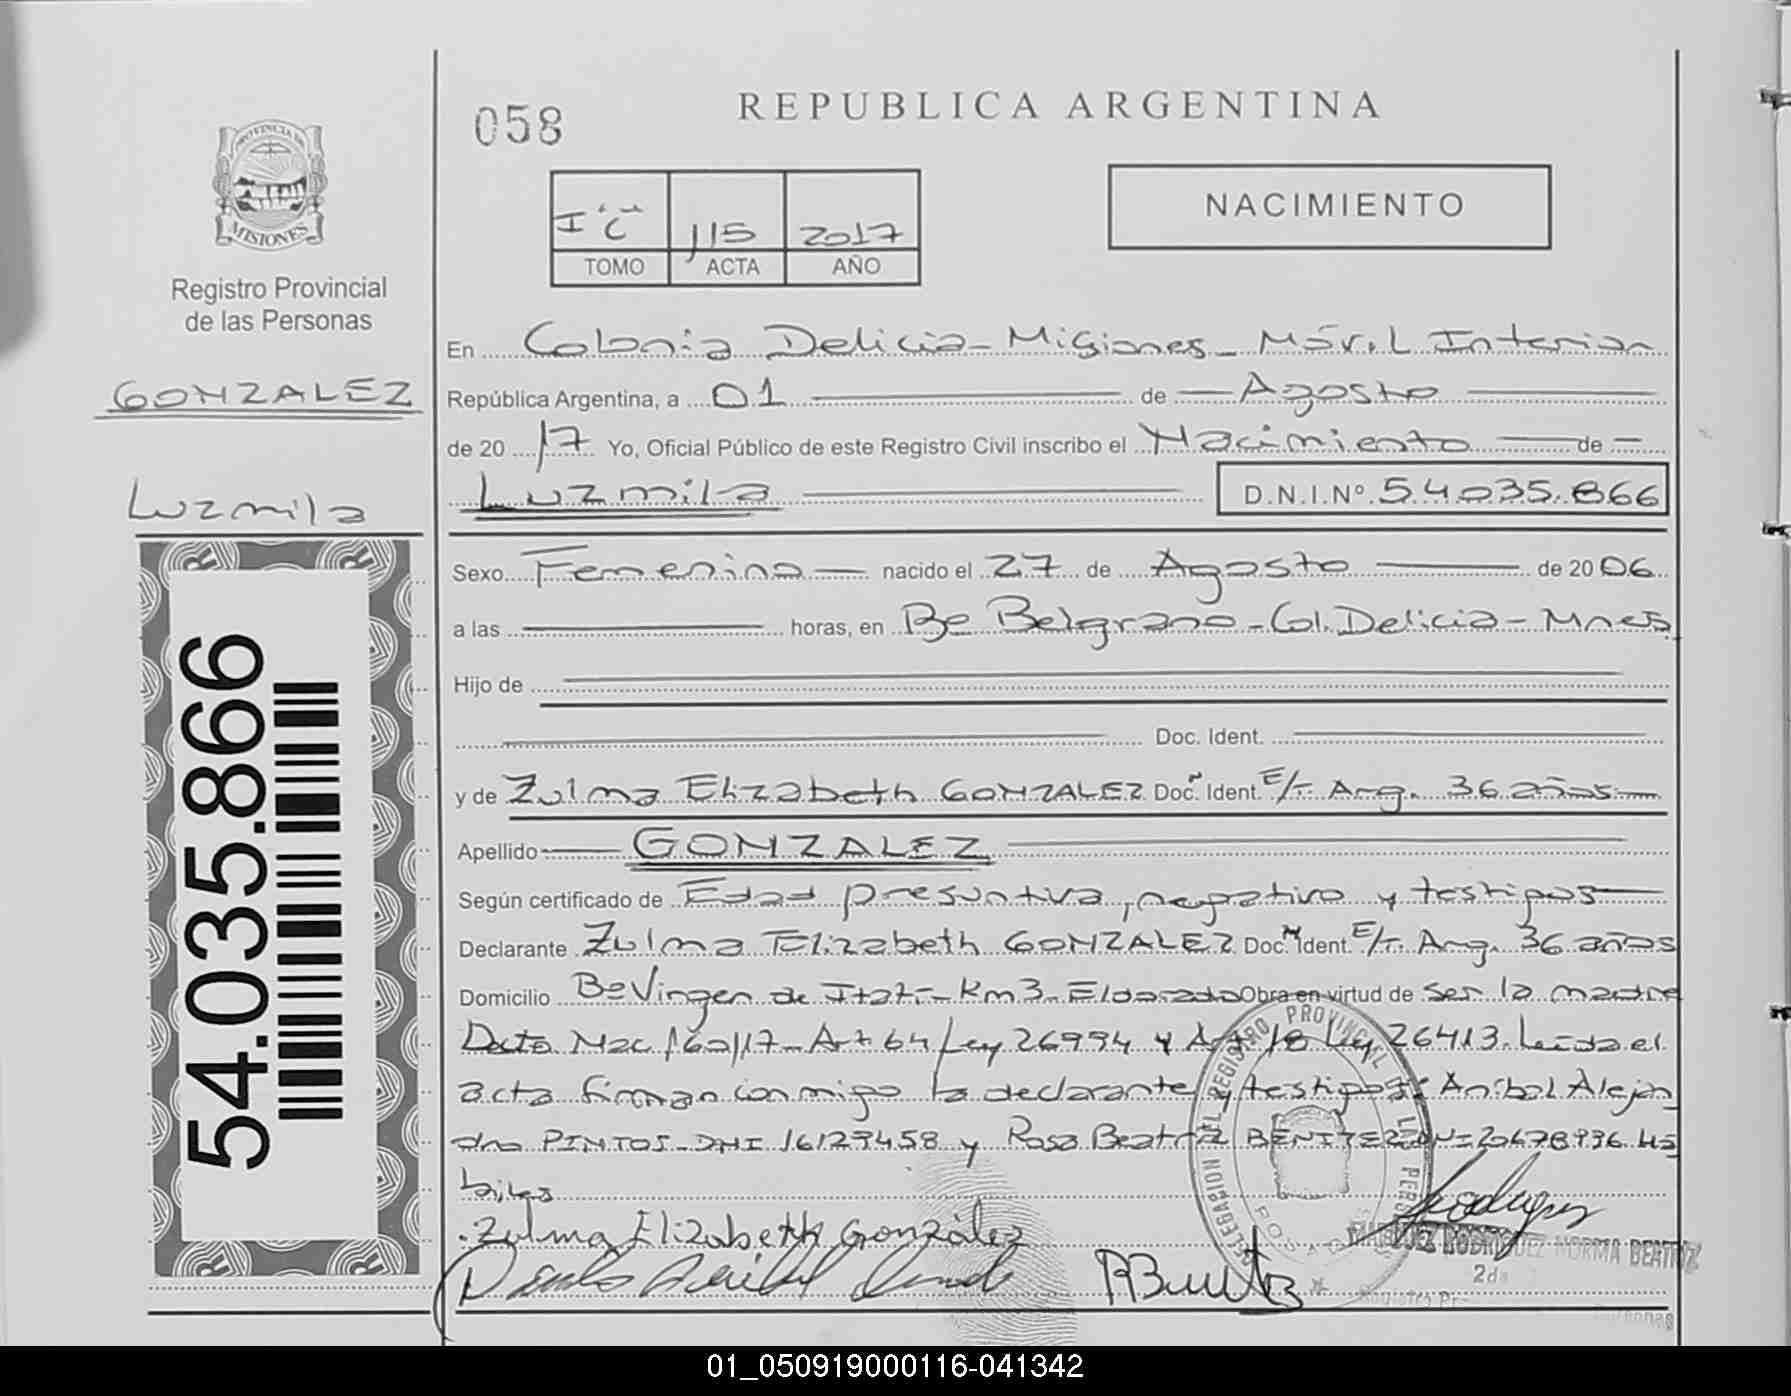 058
REPUBLICA ARGENTINA
NACIMIENTO
I "C" 115 2017
TOMO ACTA AÑO
PROVINCIA DE
MISIONES
Registro Provincial
de las Personas
GONZALEZ
Luzmila
54.035.866
En Colonia Delicia - Misiones - Móvil Interior
República Argentina, a 01 de Agosto
de 2017 Yo, Oficial Público de este Registro Civil inscribo el Nacimiento de
Luzmila D.N.I.Nº 54.035.866
Sexo Femenino nacido el 27 de Agosto de 2006
a las horas, en Bº Belgrano - Col. Delicia - Mnes.
Hijo de
Doc. Ident.
y de Zulma Elizabeth GONZALEZ Doc. Ident. E/T. Arg. 36 años
Apellido GONZALEZ
Según certificado de Edad presuntiva, negativo y testigos
Declarante Zulma Elizabeth GONZALEZ Doc. Ident. E/T. Arg. 36 años
Domicilio Bº Virgen de Itatí - Km 3 - Eldorado Obra en virtud de ser la madre
Dcto Nac 160/17 - Art 64 Ley 26994 y Art 18 Ley 26413. Leída el
acta firman conmigo la declarante y testigos: Aníbal Alejan
dro PINTOS - DNI 16129458 y Rosa Beatriz BENITEZ DNI 20678936. Há
biles
Zulma Elizabeth González
RODRIGUEZ NORMA BEATRIZ
DELEGACION DEL REGISTRO PROVINCIAL
POSADAS
01_050919000116-041342